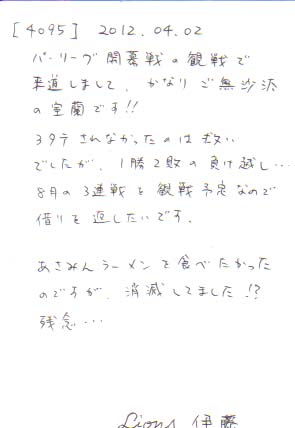 [4095] 2012.04.02
パ・リーグ開幕戦の観戦で
来道しまして、かなりご無沙汰
の室蘭です!!
3タテされなかったのは救い
でしたが、1勝2敗の負け越し…
8月の3連戦も観戦予定なので
借りを返したいです。
あさみんラーメンを食べたかった
のですが、消滅してました!?
残念…
Lions 伊藤